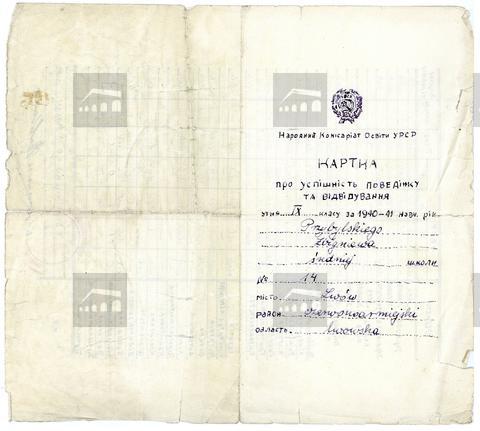 Народний Комісаріат Освіти УРСР
КАРТКА
про успішність поведінку
та відвідування
учня IX класу за 1940-41 навч. рік
Przybylskiego
Zbigniewa
średniej школи
№ 14
місто Lwów
район
область Lwowska